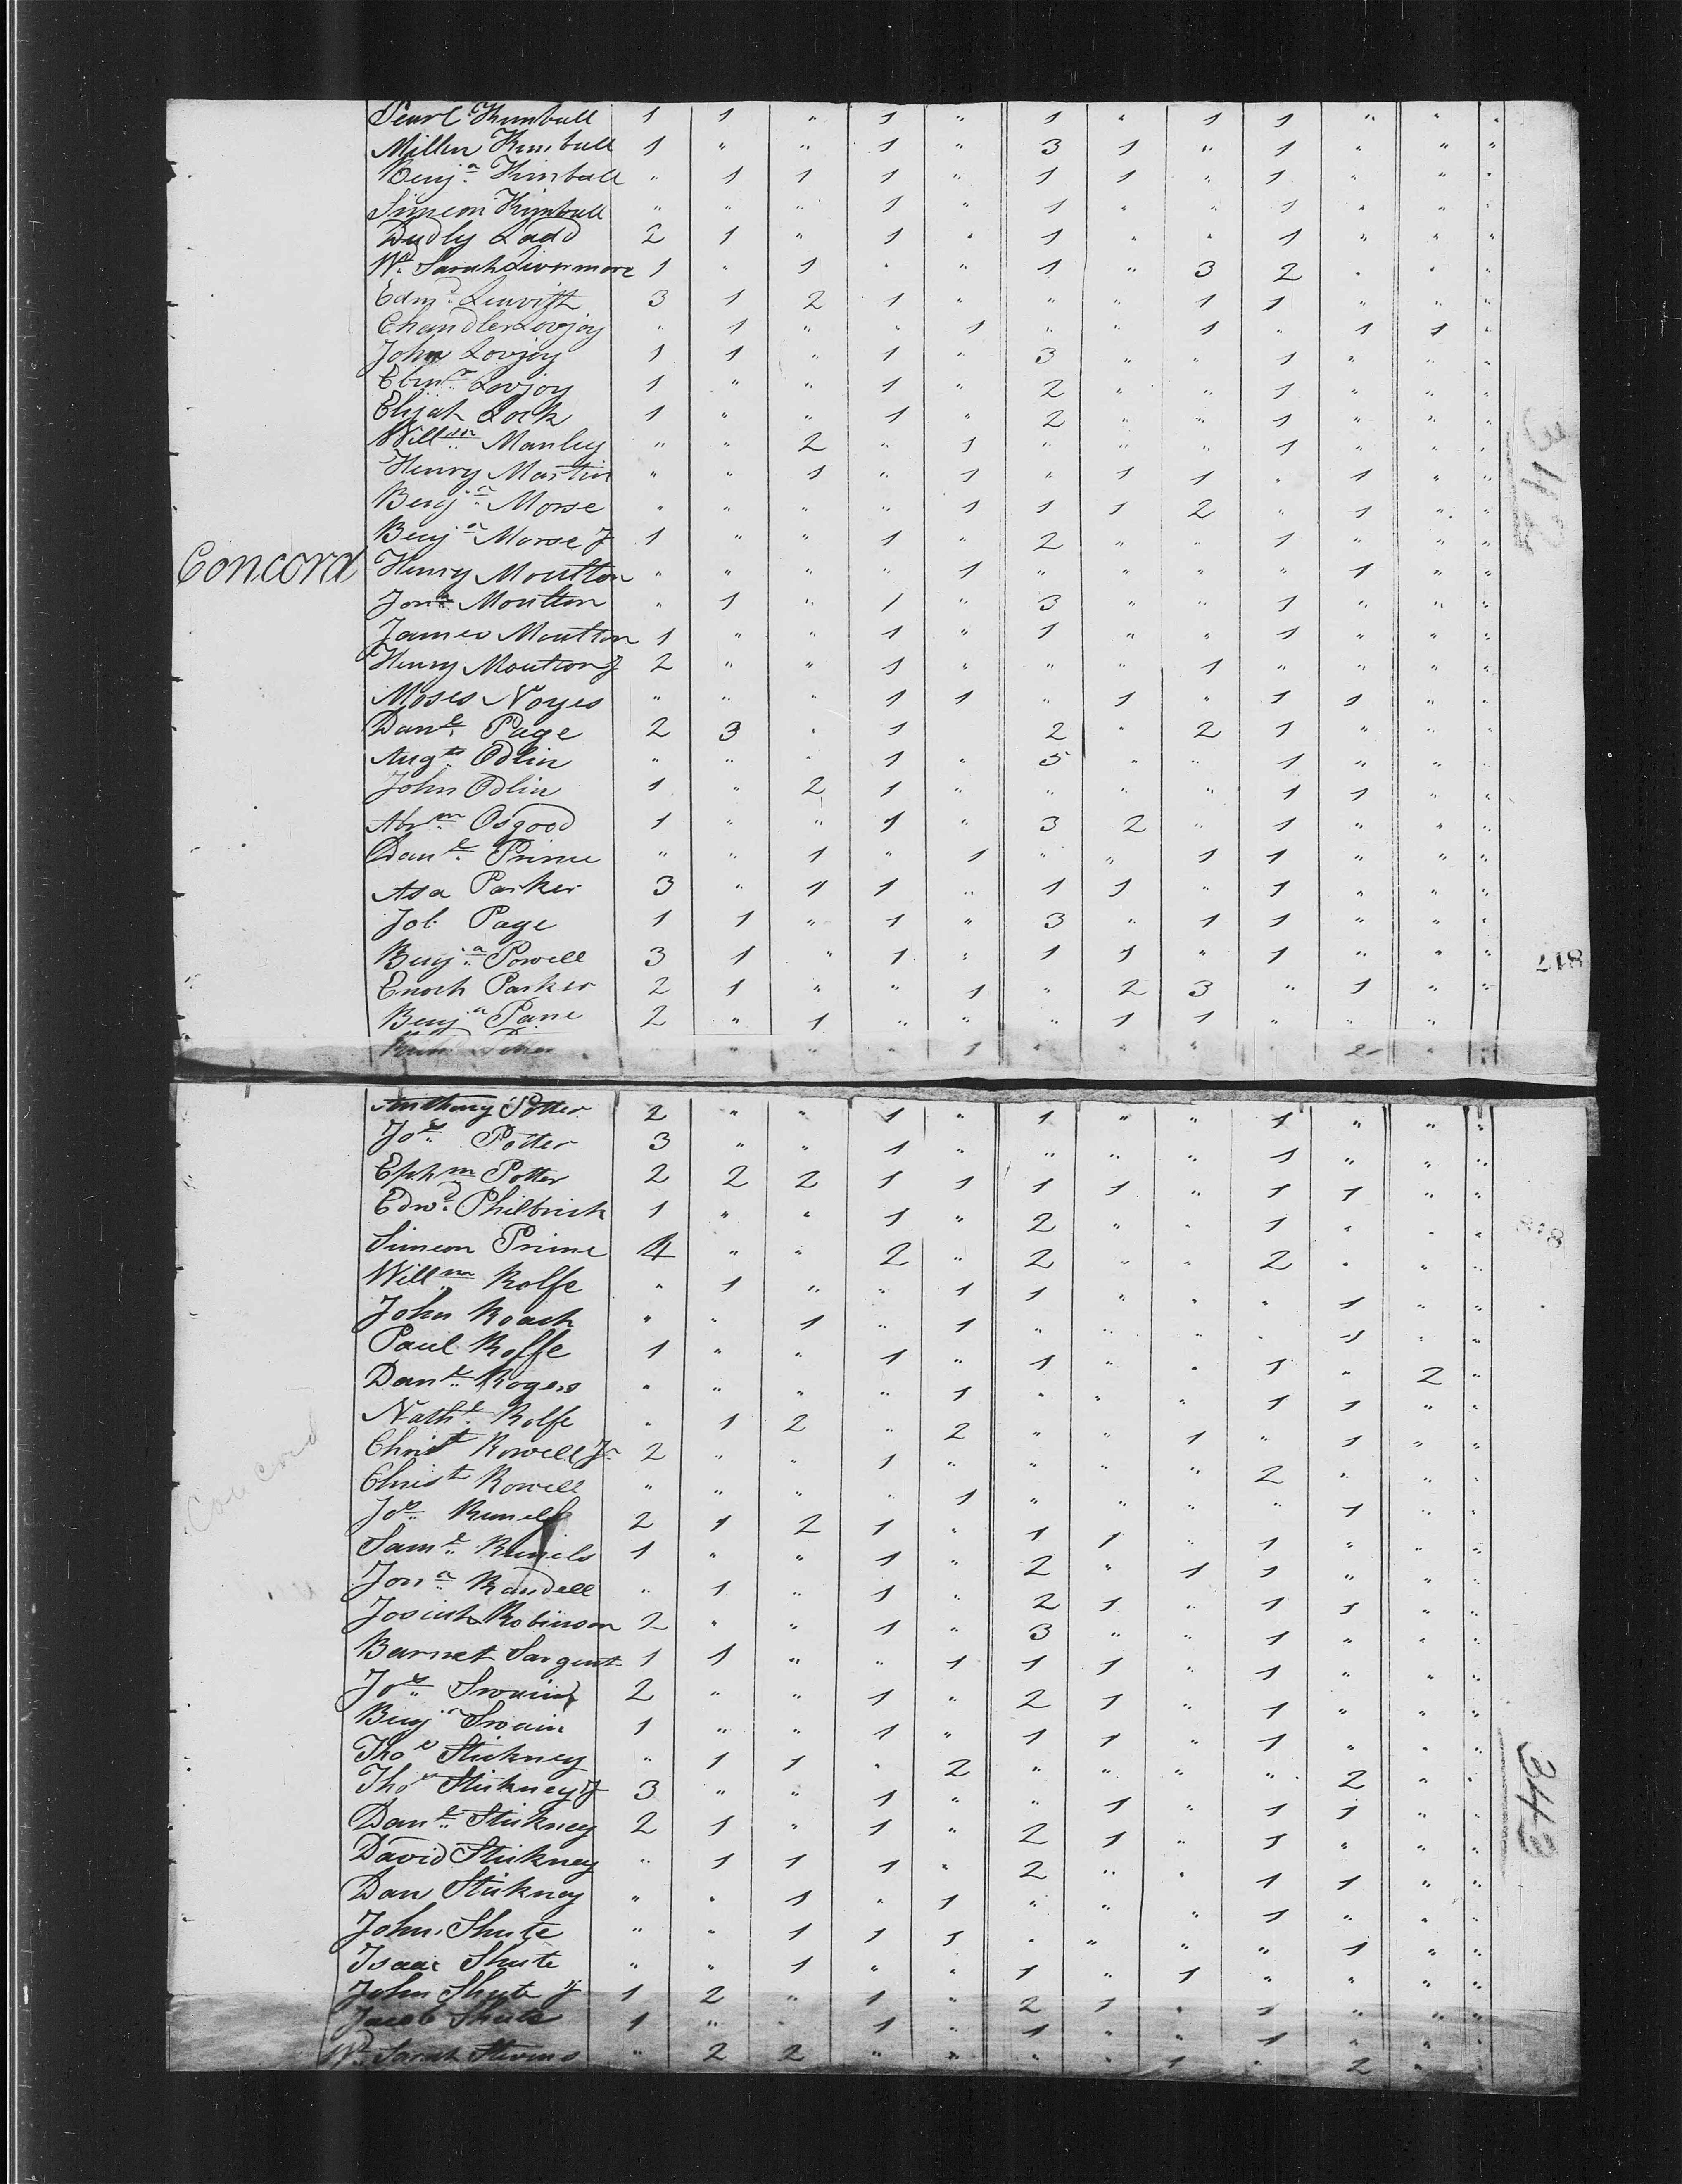 Pearl Kimball 1 1 " 1 " 1 " 1 1 " " "
Millen Kimball 1 " " 1 " 3 1 " 1 " " "
Benjª Kimball " 1 1 1 " 1 1 " 1 " " "
Simeon Kimball " " " 1 " 1 " " 1 " " "
Dudly Ladd 2 1 " 1 " 1 " " 1 " " "
Wd Sarah Livermore 1 " 1 " " 1 " 3 2 " " "
Edmd Leavitt 3 1 2 1 " " " 1 1 " " "
Chandler Lovjoy " 1 " " 1 " " 1 " 1 1 "
John Lovjoy 1 1 " 1 " 3 " " 1 " " "
Ebenr Lovjoy 1 " " 1 " 2 " " 1 " " "
Elijah Lock 1 " " 1 " 2 " " 1 " " "
Willm Manley " " 2 " 1 " " " 1 " " "
Henry Martin " " 1 " 1 " 1 1 " 1 " "
Benjª Morse " " " " 1 1 1 2 " 1 " "
Benjª Morse J 1 " " 1 " 2 " " 1 " " "
Concord
Henry Moulton " " " " 1 " " " " 1 " "
Jonª Moulton " 1 " 1 " 3 " " 1 " " "
James Moulton 1 " " 1 " 1 " " 1 " " "
Henry Moulton J 2 " " 1 " " " 1 " " " "
Moses Noyes " " " 1 1 " 1 " 1 1 " "
Danl Page 2 3 " 1 2 " 2 1 " " "
Augts Odlin " " " 1 " 5 " " 1 " " "
John Odlin 1 " 2 1 " " " " 1 1 " "
Abrm Osgood 1 " " 1 " 3 2 " 1 " " "
Danl Prince " " 1 " 1 " " 1 1 " " "
Asa Parker 3 " 1 1 " 1 1 " 1 " " "
Job Page 1 1 " 1 " 3 " 1 1 " " "
Benjª Powell 3 1 " 1 " 1 1 " 1 " " "
817
Enoch Parker 2 1 " " 1 " 2 3 " 1 " "
Benjª Pane 2 " 1 " " " 1 1 " " "
Anthony Potter 2 " " 1 " 1 " " 1 " " "
Jos Potter 3 " " 1 " " " " 1 " " "
Ephm Potter 2 2 2 1 1 1 1 " 1 1 " "
Edwd Philbrick 1 " " 1 " 2 " " 1 " " "
818
Simeon Prime 4 " " 2 " 2 " " 2 " " "
Willm Rolfe " 1 " " 1 1 " " " 1 " "
John Roach " " 1 " 1 " " " " 1 " "
Paul Rolfe 1 " " 1 " 1 " " 1 " 2 "
Danl Rogers " " " " 1 " " " 1 1 " "
Nathl Rolfe " 1 2 " 2 " " 1 " 1 " "
Christ Rowell Jr 2 " " 1 " " " " 2 " " "
Christ Rowell " " " " 1 " " " " 1 " "
Concord
Jos Runels 2 1 2 1 " 1 1 " 1 " " "
Saml Runels 1 " " 1 " 2 " 1 1 " " "
Jonª Randell " 1 " 1 " 2 1 " 1 1 " "
Josiah Robinson 2 " " 1 " 3 " " 1 " " "
Barnet Sargent 1 1 " " 1 1 1 " 1 " " "
Jos Swain 2 " " 1 " 2 1 " 1 " " "
Benj Swain 1 " " 1 " 1 1 " 1 " " "
Thos Stickney " 1 1 " 2 " " " " 2 " "
Thos Stickney J 3 " " 1 " " 1 " 1 1 " "
343
Danl Stickney 2 1 " 1 " 2 1 " 1 " " "
David Stickney " 1 1 1 " 2 " " 1 1 " "
Dan Stickney " " 1 " 1 " " " 1 " " "
John Shute " " 1 1 1 " " " " 1 " "
Isaac Shute " " 1 " " 1 " 1 " " " "
John Shute J 1 2 " 1 " 2 1 " 1 " " "
Jacob Shute 1 " " 1 " 1 " " 1 " " "
Wd Sarah Stevens " 2 2 " " " " 1 " 2 "